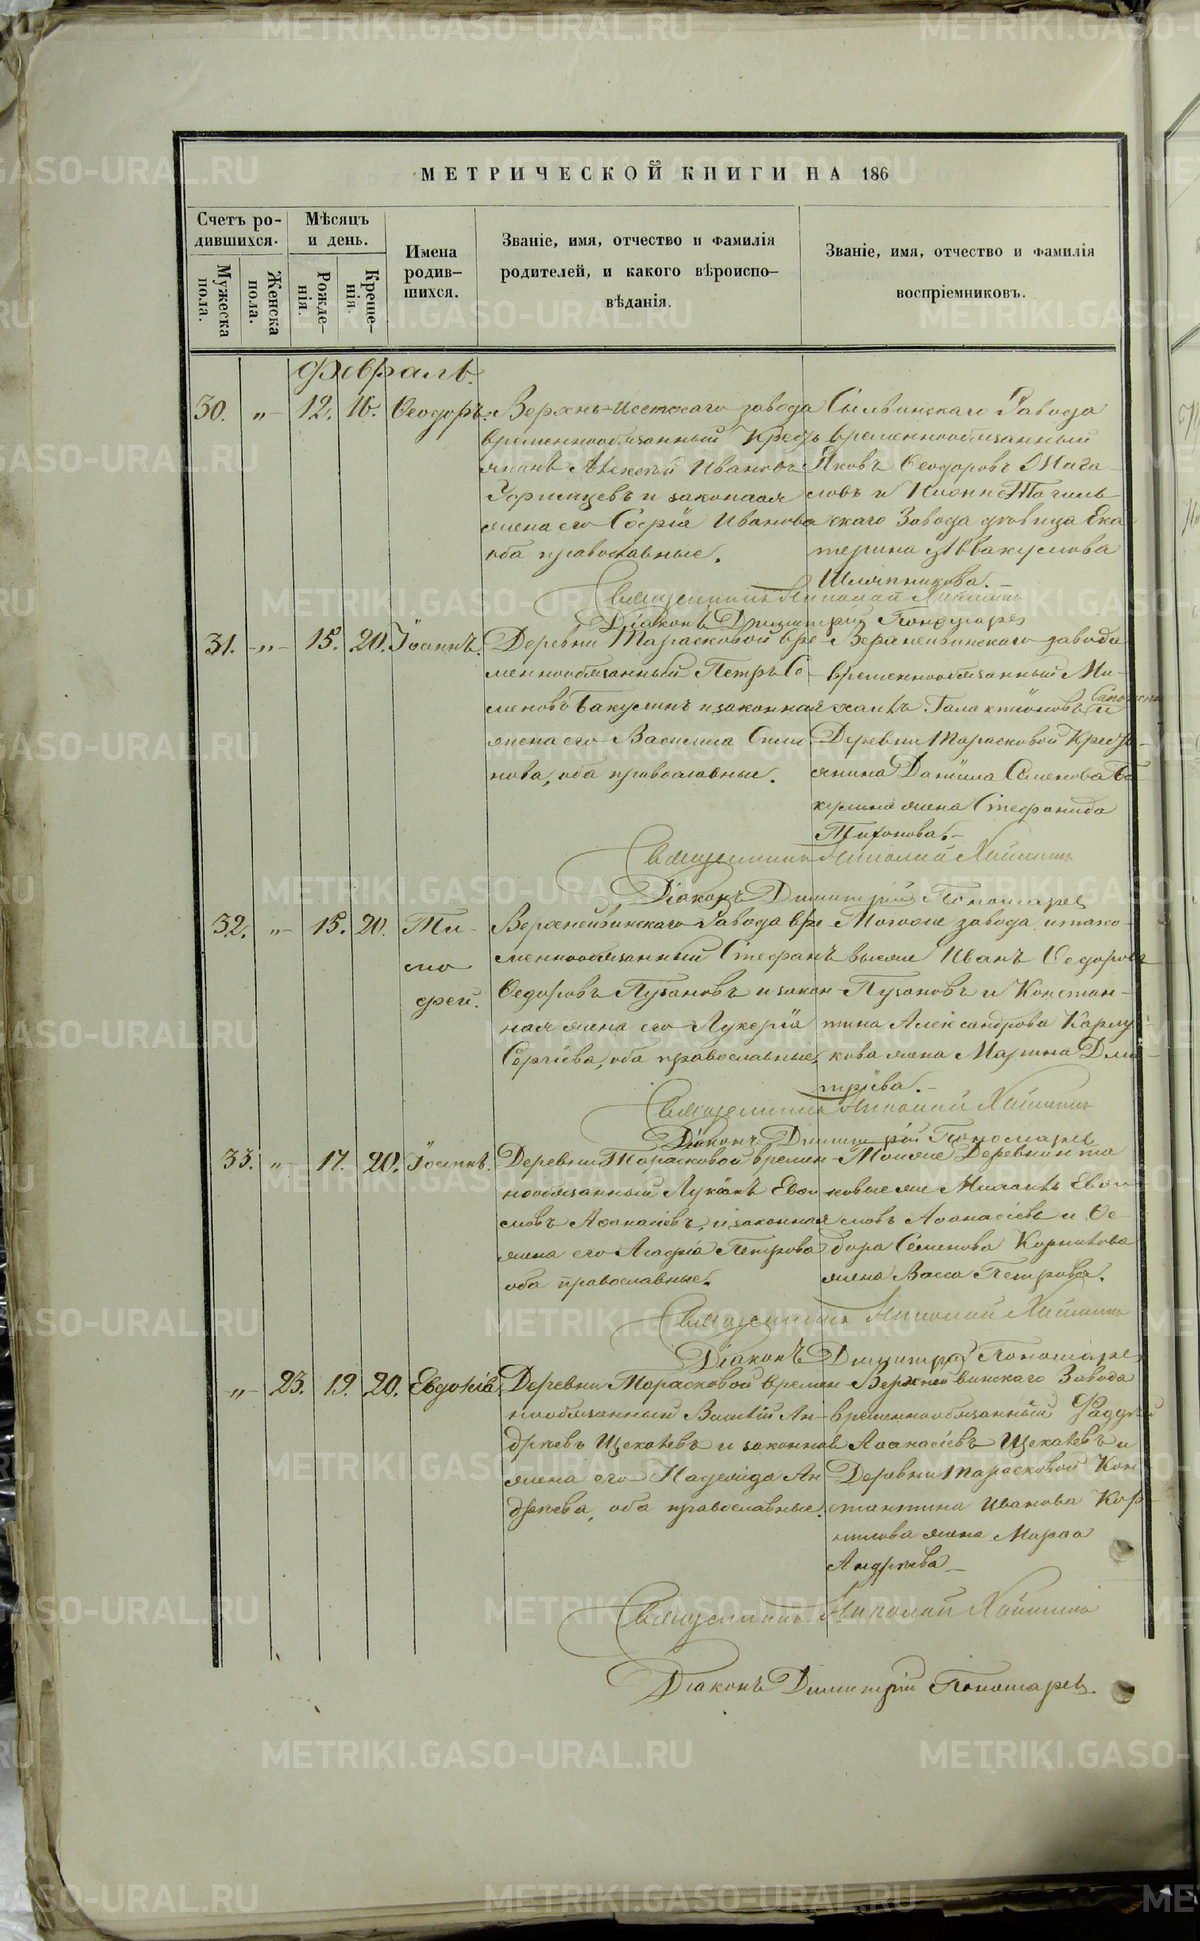 МЕТРИЧЕСКОЙ КНИГИ НА 186
Счетъ ро-
дившихся.
Мѣсяцъ
и день.
Имена
родив-
шихся.
Званіе, имя, отчество и фамилія
родителей, и какого вѣроиспо-
вѣданія.
Званіе, имя, отчество и фамилія
воспріемниковъ.
Мужеска
пола.
Женска
пола.
Рожде-
нія.
Креще-
нія.
Февраль.
30. „ 12. 16. Ѳеодоръ.
Верхъ-Исетскаго завода
временнообязанный Кресть
янинъ Алексѣй Ивановъ
и законная
жена его Софія Иванова
оба православные.
Сылвинскаго Завода
временнообязанный
Яковъ Ѳеодоровъ
и
скаго Завода дѣвица Ека
терина Аввакумова
Священникъ Николай
Діаконъ Димитрій Пономаревъ
31. „ 15. 20. Іоаннъ.
Деревни Тарасковой вре-
меннообязанный Петръ Се-
меновъ Бакулинъ и законная
жена его Василиса Спири-
нова, оба православные.
Верхнейвинскаго завода
временнообязанный Ми-
хаилъ Галактіоновъ и
Деревни Тарасковой Крестья-
янина Даніила Семенова Ба
кулина жена Стефанида
Тихонова.
Священникъ Николай
Діаконъ Димитрій Пономаревъ
32. „ 15. 20. Ти-
мо
фей.
Верхнейвинскаго Завода вре
меннообязанный Стефанъ
Ѳедоровъ Пузановъ и закон-
ная жена его Лукерія
Сергіева, оба православные,
Тогоже завода и тако-
выже Иванъ Ѳедоровъ
Пузановъ и Констан-
тина Александрова
жена Марина Дми-
тріева.
Священникъ Николай
Діаконъ Димитрій Пономаревъ
33. „ 17. 20. Іоаннъ.
Деревни Тарасковой времен-
нообязанный Лукіанъ Евфи
мовъ Аѳанасьевъ, и законная
жена его Агафія Петрова
оба православные.
Тойже Деревни и та
ковыеже Михаилъ Евфи
мовъ Аѳанасьевъ и Ѳе-
дора Семенова Корнилова
жена Васса Петрова.
Священникъ Николай
Діаконъ Димитрій Пономаревъ
„ 23. 19. 20. Евдокія
Деревни Тарасковой времен
нообязанный Василій Ан-
дреевъ Щекалевъ и законная
жена его Надежда Ан
дреева, оба православные.
Верхнейвинскаго Завода
временнообязанный Фаддей
Аѳанасьевъ Щекалевъ и
Деревни Тарасковой Кон
стантина Иванова Кор-
нилова жена Марѳа
Андреева
Священникъ Николай
Діаконъ Димитрій Пономаревъ.
METRIKI.GASO-URAL.RU